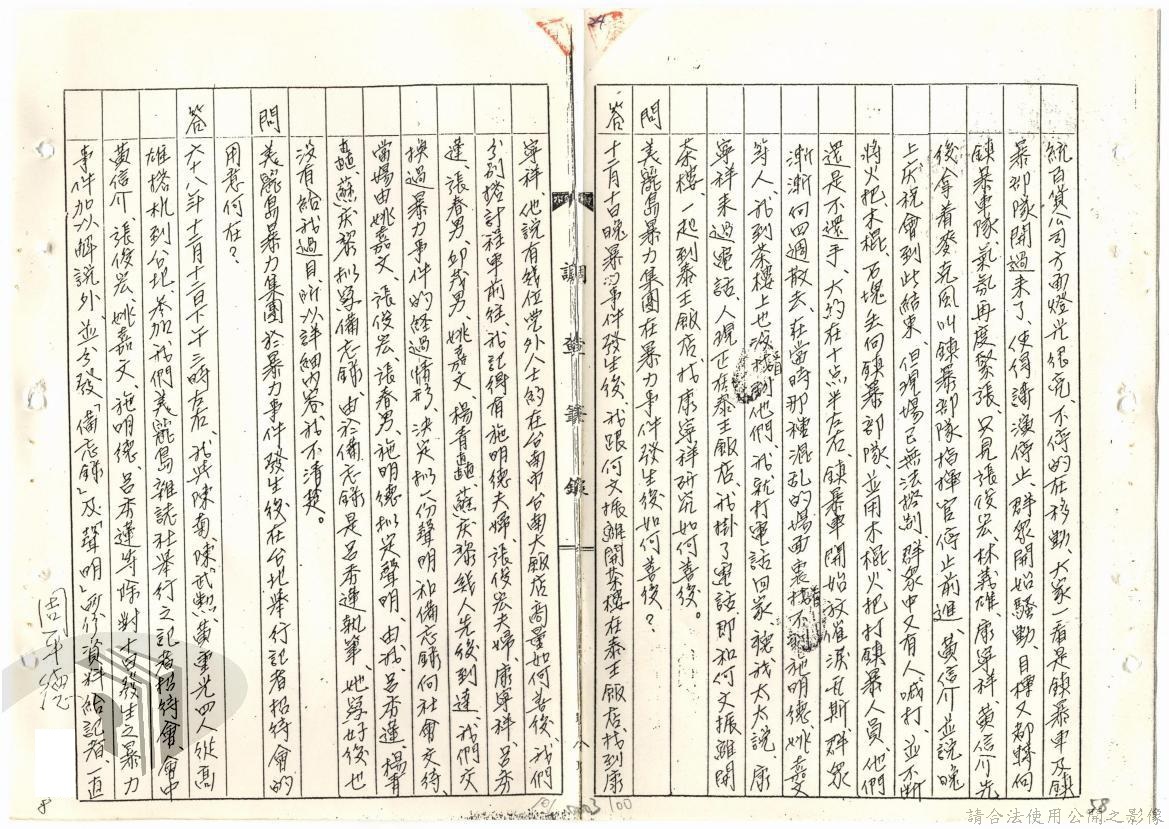 統百貨公司方面燈光很亮、不停的在移動、大家一看是鎮暴車及鎮
暴部隊開過來了、使得講演停止、群眾開始騷動、目標又都轉向
鎮暴車隊、氣氛再度緊張、只見張俊宏、林義雄、康寧祥、黃信介先
後拿着麥克風叫鎮暴部隊指揮官停止前進、黃信介並說晚
上慶祝會到此結束、但現場已無法控制、群眾中又有人喊打、並不斷
將火把、木棍、石塊丟向鎮暴部隊、並用木棍火把打鎮暴人員、他們
還是不還手、大約在十点半左右、鎮暴車開始放催淚瓦斯、群眾
漸漸向四週散去、在當時那種混乱的場面裏找不到施明德姚嘉文
等人、我到茶樓上也沒找到他們、我就打電話回家、聽我太太說、康
寧祥來過電話、人現正在泰王飯店、我掛了電話即和何文振離開
茶樓、一起到泰王飯店、找康寧祥研究如何善後。
問 美麗島暴力集團在暴力事件發生後如何善後？
答 十二月十日晚暴力事件發生後、我跟何文振離開茶樓在泰王飯店找到康
調查筆錄
寧祥、他說有幾位党外人士約在台南市台南大飯店商量如何善後、我們
分別搭計程車前往、我記得有施明德夫婦、張俊宏夫婦、康寧祥、呂秀
蓮、張春男、邱茂男、姚嘉文、楊青矗、蘇慶黎幾人先後到達、我們交
換過暴力事件的経過情形、決定擬一份聲明和備忘錄向社會交待、
當場由姚嘉文、張俊宏、張春男、施明德擬定聲明、由我、呂秀蓮、楊青
矗、蘇慶黎擬學備忘錄、由於備忘錄是呂秀蓮執筆、她學好後也
沒有給我過目、所以詳細內容我不清楚。
問 美麗島暴力集團於暴力事件發生後在台北舉行記者招待會的
用意何在？
答 六十八年十二月十二日下午三時左右、我與陳菊、陳武勳、黃重光四人從高
雄搭机到台北、參加我們美麗島雜誌社舉行之記者招待會、會中
黃信介、張俊宏、姚嘉文、施明德、呂秀蓮等除對十日發生之暴力
事件加以解說外、並分發「備忘錄」及「聲明」兩份資料給記者、一直
周平德
24
8
101
100
58
請合法使用公開之影像